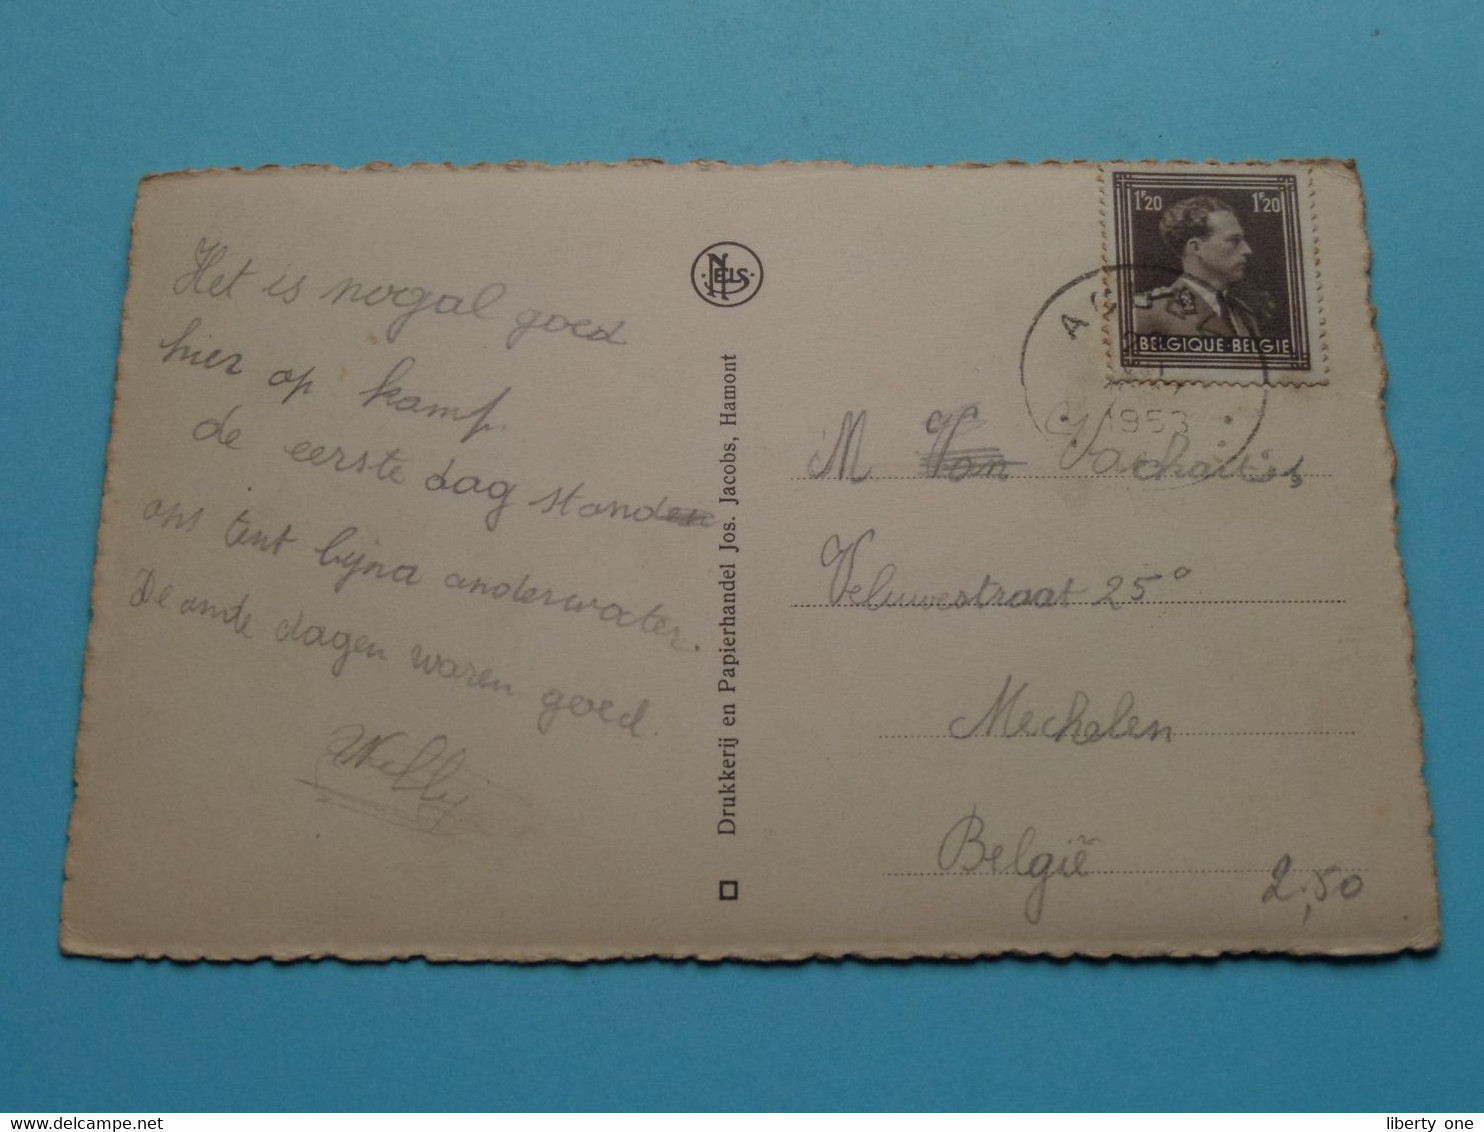 Het is nogal goed
hier op kamp.
de eerste dag stond
ons tent bijna onderwater.
De ande dagen waren goed.
Willy
NELS
Drukkerij en Papierhandel Jos. Jacobs, Hamont
1F20 1F20
BELGIQUE·BELGIE
1953
M Van
Veluwestraat 25°
Mechelen
België
2,50
liberty one